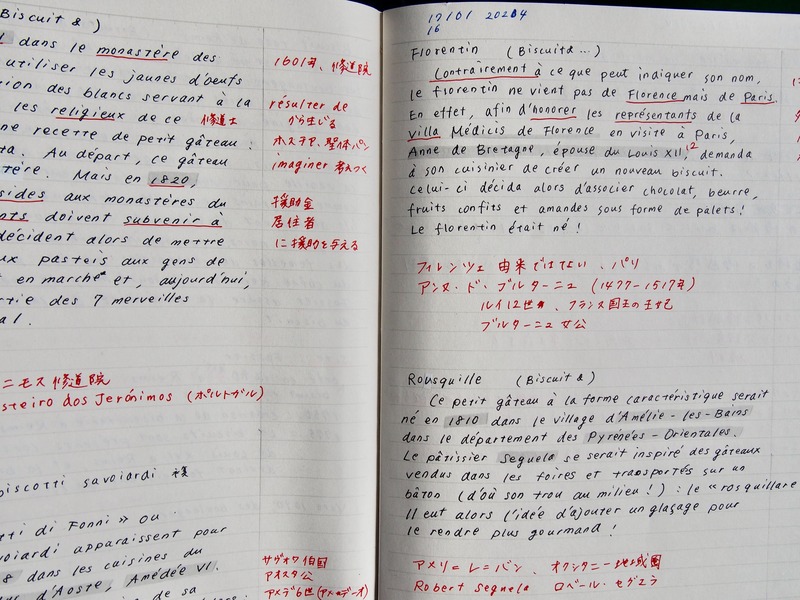 Biscuit & )
dans le monastère des
utiliser les jaunes d'oeufs
ion des blancs servant à la
les religieux de ce 修道士
ne recette de petit gâteau :
ta. Au départ, ce gâteau
tère. Mais en 1820,
sides aux monastères du
nts doivent subvenir à
décident alors de mettre
ux pasteis aux gens de
en marché et, aujourd'hui,
rtie des 7 merveilles
al.
1601年、修道院
résulter de
から生じる
ホスチア、聖体パン
imaginer 考えつく
援助金
居住者
に援助を与える
ニモス修道院
steiro dos Jerónimos (ポルトガル)
biscotti savoiardi
ti di Fonni » ou
voiardi apparaissent pour
8 dans les cuisines du
d'Aoste, Amédée VI.
de sa
サヴォワ伯国
アオスタ公
アメデ6世(アメデーオ)
17/01 2024
16
Florentin (Biscuita...)
Contrairement à ce que peut indiquer son nom,
le florentin ne vient pas de Florence mais de Paris.
En effet, afin d'honorer les représentants de la
villa Médicis de Florence en visite à Paris,
Anne de Bretagne, épouse du Louis XII, demanda
à son cuisinier de créer un nouveau biscuit.
Celui-ci décida alors d'associer chocolat, beurre,
fruits confits et amandes sous forme de palets !
Le florentin était né !
フィレンツェ 由来ではない、パリ
アンヌ・ド・ブルターニュ (1477-1517年)
ルイ12世、フランス国王の王妃
ブルターニュ女公
Rousquille (Biscuit &)
Ce petit gâteau à la forme caractéristique serait
né en 1810 dans le village d'Amélie-les-Bains
dans le département des Pyrénées-Orientales.
Le pâtissier Seguela se serait inspiré des gâteaux
vendus dans les foires et transportés sur un
bâton (d'où son trou au milieu !) : le « rosquillare
Il eut alors l'idée d'ajouter un glaçage pour
le rendre plus gourmand !
アメリ=レ=バン、オクシタニー地域圏
Robert Seguela ロベール・セグエラ